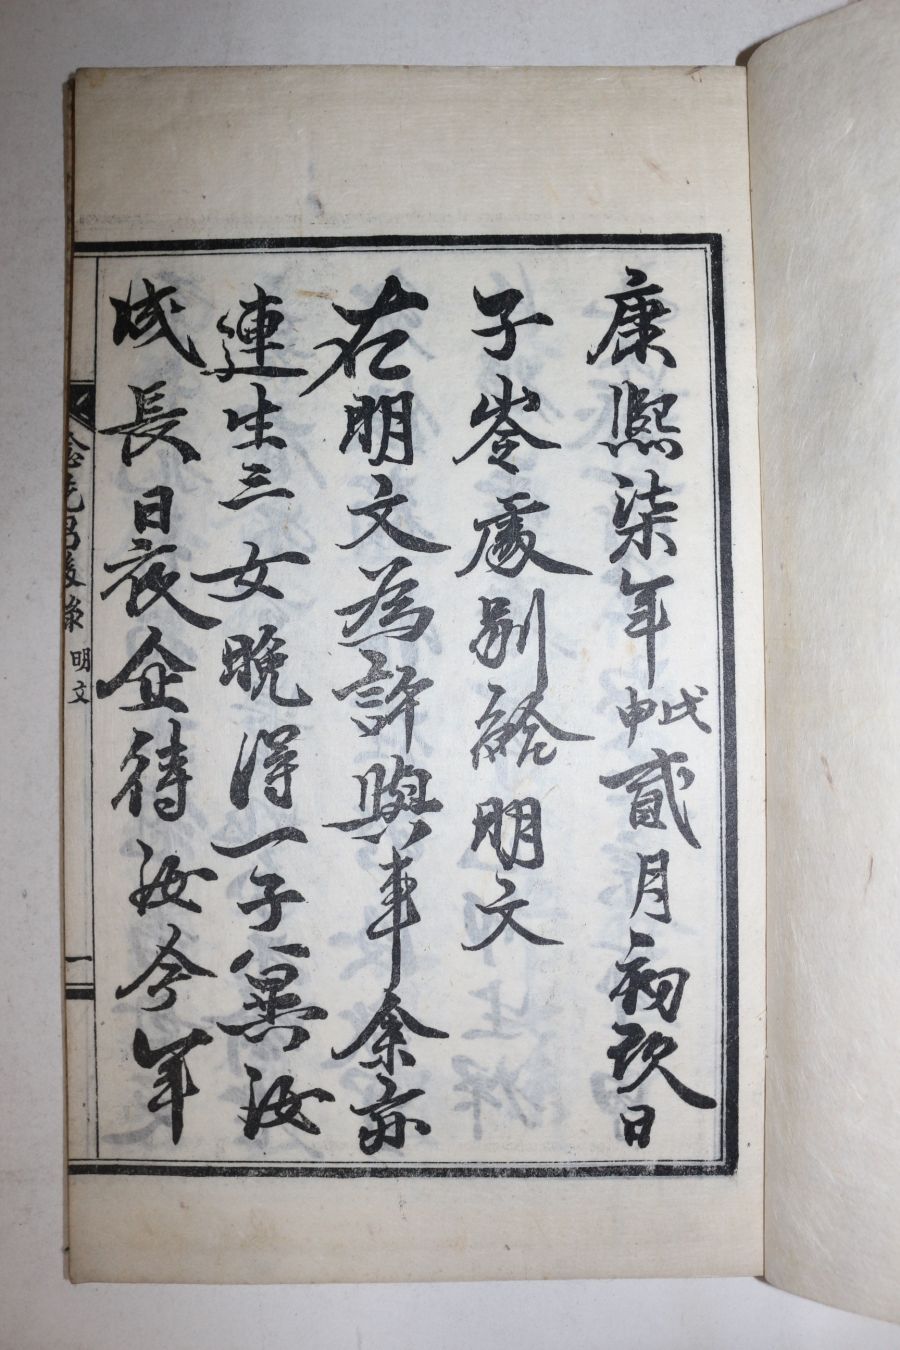 康熙柒年戊申貳月初玖日
子岑處別給明文
右明文為許與事余亦
連生三女晩得一子冀汝
成長日夜企待汝今年
先 後 明文
一